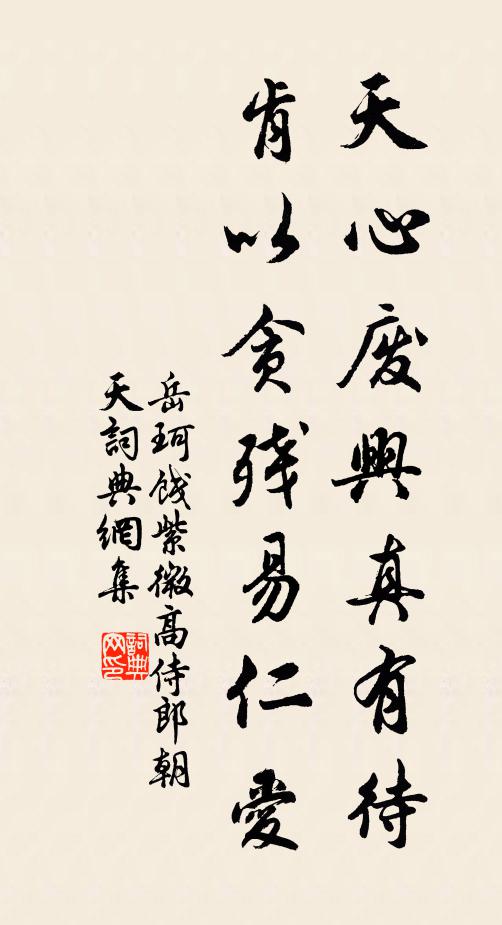 天心废興真有待
肯以貪残易仁愛
岳珂餞紫微高侍郎朝
天詞典網集
詞典网印